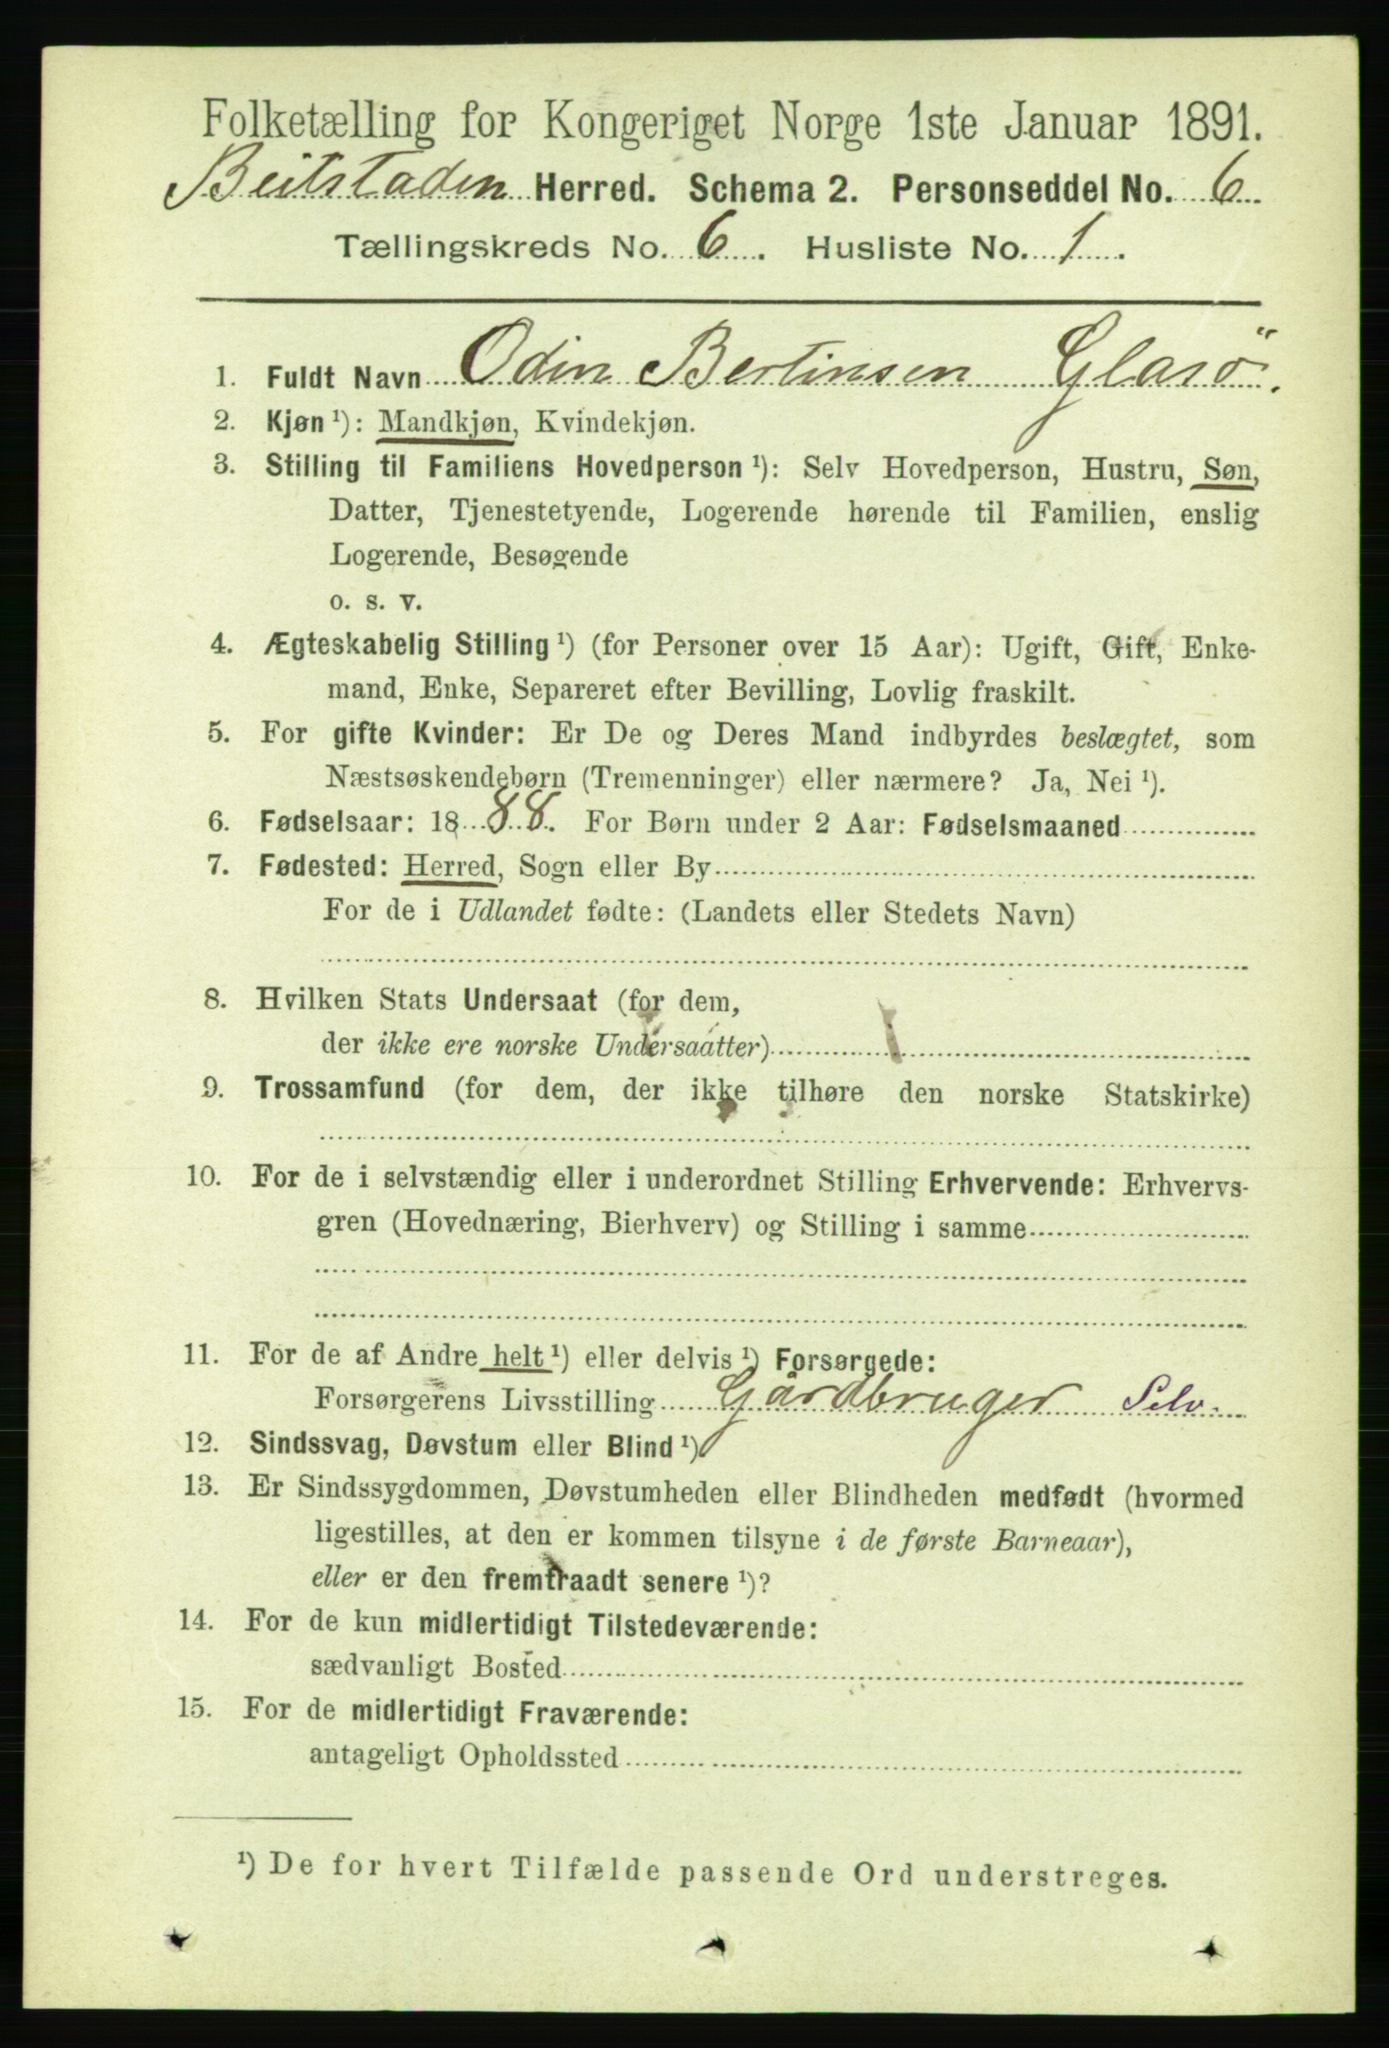 Folketælling for Kongeriget Norge 1ste Januar 1891.
Beitstaden Herred. Schema 2. Personseddel No. 6
Tællingskreds No. 6. Husliste No. 1.
1. Fuldt Navn Odin Bertinsen Glasö.
2. Kjøn ¹): Mandkjøn, Kvindekjøn.
3. Stilling til Familiens Hovedperson ¹): Selv Hovedperson, Hustru, Søn,
Datter, Tjenestetyende, Logerende hørende til Familien, enslig
Logerende, Besøgende
o. s. v.
4. Ægteskabelig Stilling ¹) (for Personer over 15 Aar): Ugift, Gift, Enke-
mand, Enke, Separeret efter Bevilling, Lovlig fraskilt.
5. For gifte Kvinder: Er De og Deres Mand indbyrdes beslægtet, som
Næstsøskendebørn (Tremenninger) eller nærmere? Ja, Nei ¹).
6. Fødselsaar: 1888. For Børn under 2 Aar: Fødselsmaaned
7. Fødested: Herred, Sogn eller By
For de i Udlandet fødte: (Landets eller Stedets Navn)
8. Hvilken Stats Undersaat (for dem,
der ikke ere norske Undersaatter)
9. Trossamfund (for dem, der ikke tilhøre den norske Statskirke)
10. For de i selvstændig eller i underordnet Stilling Erhvervende: Erhvervs-
gren (Hovednæring, Bierhverv) og Stilling i samme
11. For de af Andre helt ¹) eller delvis ¹) Forsørgede:
Forsørgerens Livsstilling Gårdbruger Selv.
12. Sindssvag, Døvstum eller Blind ¹)
13. Er Sindssygdommen, Døvstumheden eller Blindheden medfødt (hvormed
ligestilles, at den er kommen tilsyne i de første Barneaar),
eller er den fremtraadt senere ¹)?
14. For de kun midlertidigt Tilstedeværende:
sædvanligt Bosted
15. For de midlertidigt Fraværende:
antageligt Opholdssted
¹) De for hvert Tilfælde passende Ord understreges.